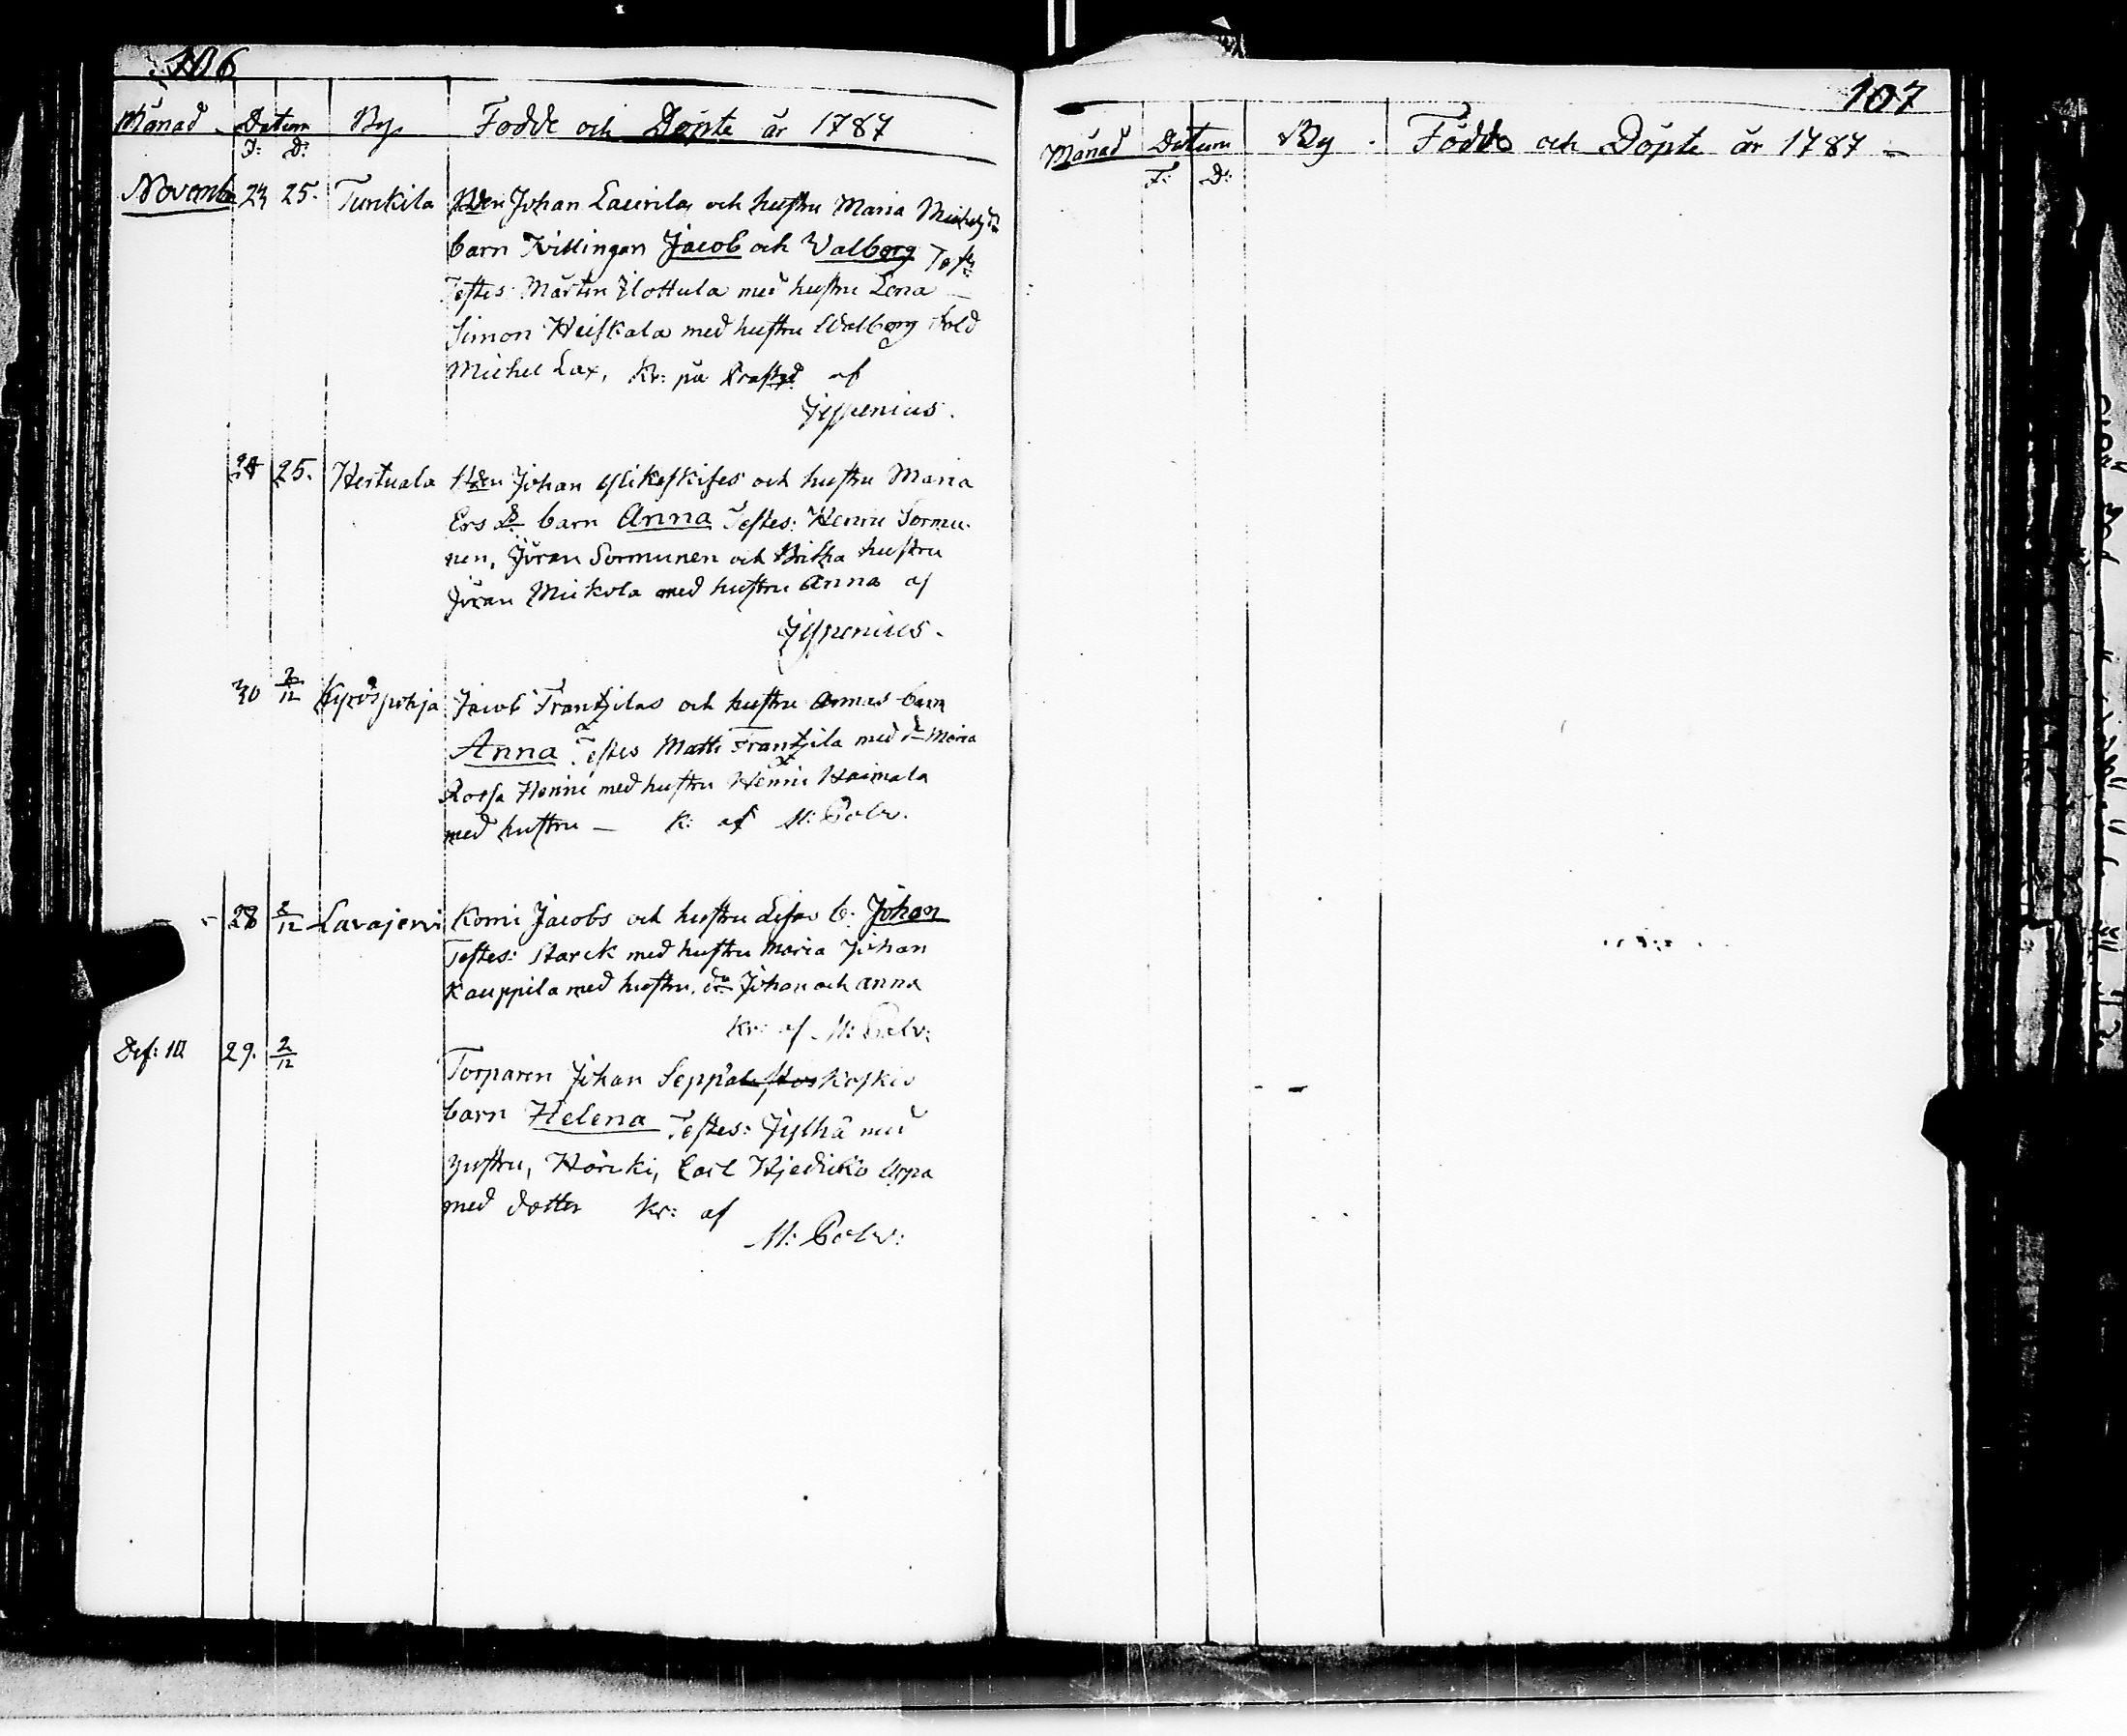 106
Månad Datum By Födde och Döpte år 1787
F: D:
Novemb 24 25. Tunkila Bden Johan Laurilas och hustru Maria Michelsd:r
barn Tvillingar Jacob och Valborg Test:
Testes Mårten Ylottula med hustru Lena
Simon Heiskala med hustru Walborg Sold
Michel Lax, Kr: på Prästgd af
Jippenius.
24 25. Hertuala Bden Johan Ylikeskises och hustru Maria
Ers D: barn Anna Testes: Henric Sormu-
nen, Jöran Sormunen och Britha hustru
Jöran Mickola med hustru Anna af
Jippenius.
30 2/12 Kyröspohja Jacob Frantzilas och hustru Annas barn
Anna Testes Matts Frantzila med d: Maria
Henric med hustru Henric Haimala
med hustru — K: af M: Polv.
28 2/12 Lavajervi Komi Jacobs och hustru Lisas b. Johan
Testes: Starck med hustru Maria Johan
Kauppila med hustru. do Johan och Anna
Kr: af M: Polv:
29. 2/12 Torparen Johan Seppäl Koskis
barn Helena Testes: Jylhä med
hustru, Härcki, Carl Uppa
med dotter Kr: af
M: Polv:
107
Månad Datum By Födde och Döpte år 1787 -
F: D: